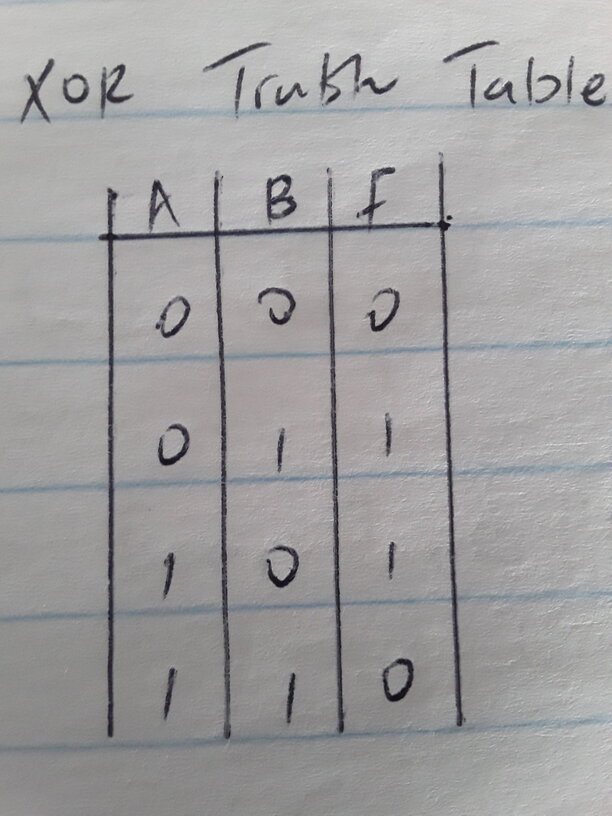 XOR Truth Table
A B F
0 0 0
0 1 1
1 0 1
1 1 0